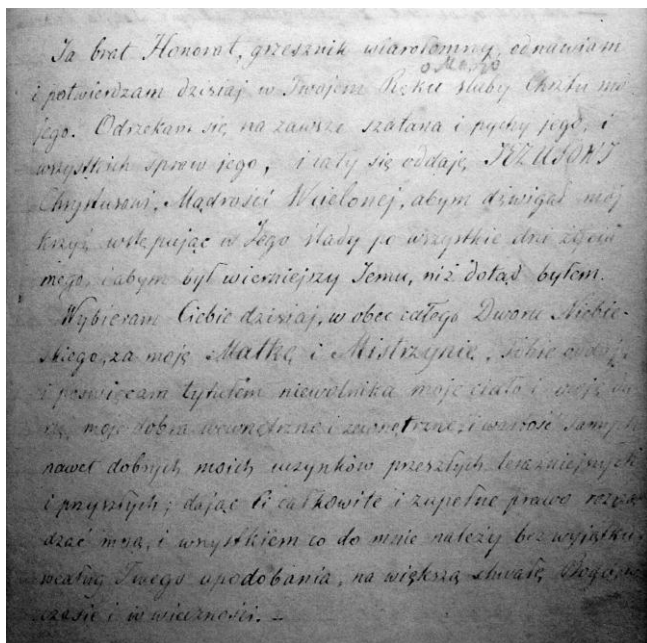 Ja brat Honorat, grzesznik wiarołomny, odnawiam
o Ma
i potwierdzam dzisiaj w Twojem Ręku śluby Chrztu mo-
jego. Odrzekam się na zawsze szatana i pychy jego, i
wszystkich spraw jego, i cały się oddaję JEZUSOWI
Chrystusowi, Mądrości Wcielonej, abym dźwigał mój
krzyż wstępując w Jego ślady po wszystkie dni życia
mego, i abym był wierniejszy Jemu, niż dotąd byłem.
Wybieram Ciebie dzisiaj, w obec całego Dworu Niebie-
skiego, za moję Matkę i Mistrzynię, Tobie oddaję
i poświęcam tytułem niewolnika moje ciało i moję du-
szę, moje dobra wewnętrzne i zewnętrzne, i wartość samych
nawet dobrych moich uczynków przeszłych teraźniejszych
i przyszłych; dając Ci całkowite i zupełne prawo rozrzą-
dzać mną, i wszystkiem co do mnie należy bez wyjątku,
według Twego upodobania, na większą chwałę Boga, w
czasie i w wieczności. –